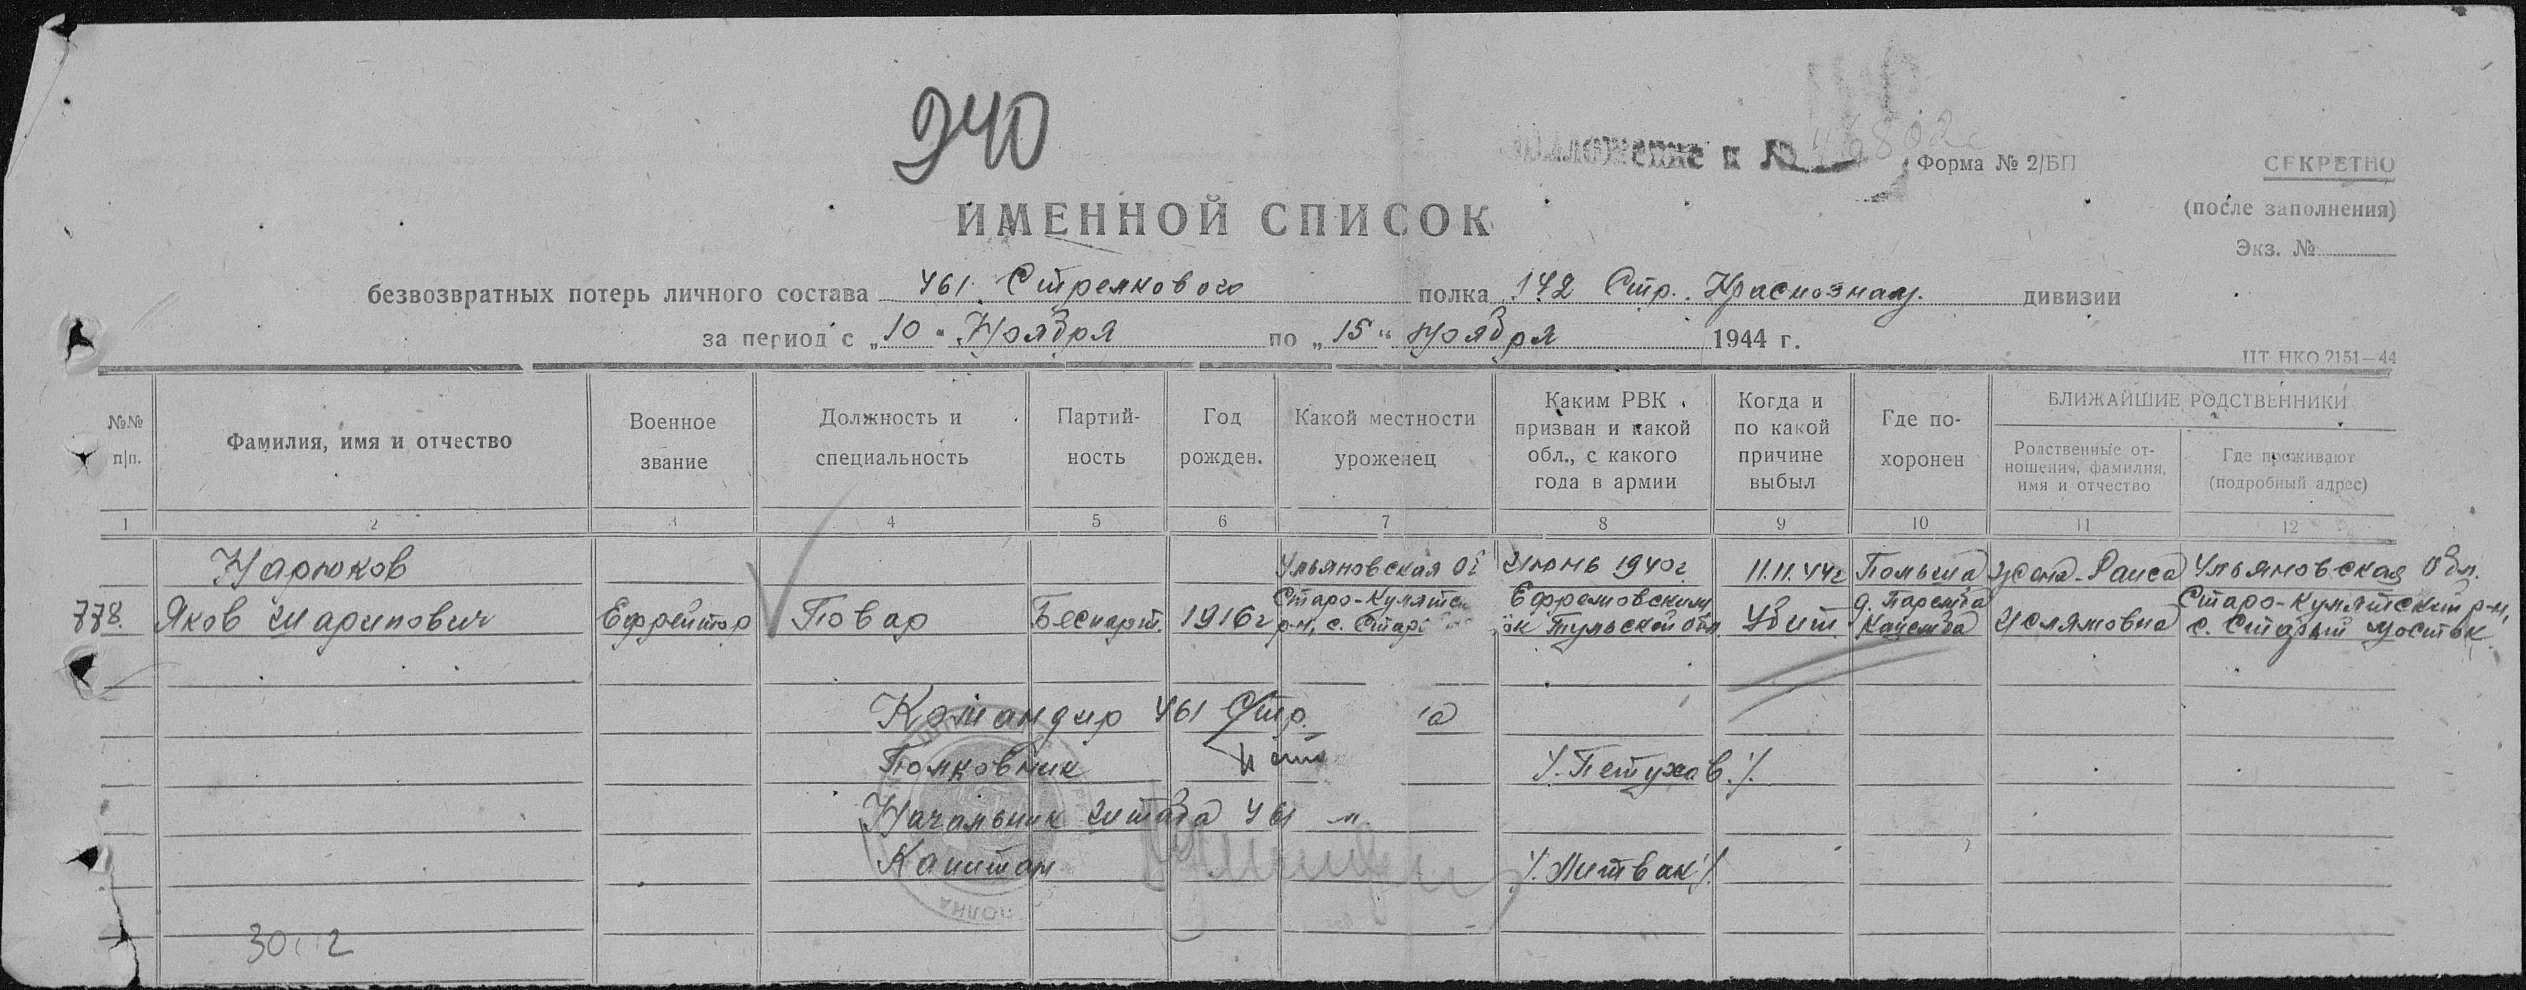 940
Приложение к № 46802с
Форма № 2/БП
СЕКРЕТНО
(после заполнения)
Экз. №
ИМЕННОЙ СПИСОК
безвозвратных потерь личного состава 461 Стрелкового полка 142 Стр. Краснознам. дивизии
за период с „10" Ноября по „15" ноября 1944 г.
ЦТ НКО 2151—44
№№ п|п.
Фамилия, имя и отчество
Военное звание
Должность и специальность
Партийность
Год рожден.
Какой местности уроженец
Каким РВК призван и какой обл., с какого года в армии
Когда и по какой причине выбыл
Где похоронен
БЛИЖАЙШИЕ РОДСТВЕННИКИ
Родственные отношения, фамилия, имя и отчество
Где проживают (подробный адрес)
1 2 3 4 5 6 7 8 9 10 11 12
Нарюков Ульяновская об Июнь 1940г. 11.11.44г Польша жена-Раиса Ульяновская Обл.
778. Яков Шарипович Ефрейтор Повар Беспарт. 1916г Старо-Кулятск р-н, с. Стар Ефремовским Тульской обл Убит д. Исламовна Старо-Кулятский р-н, с. Старый мостяк
Командир 461 Стр.
Полковник /.Петухов./
Начальник штаба 461 "
Капитан /.Литвак/.
ПОЛКА